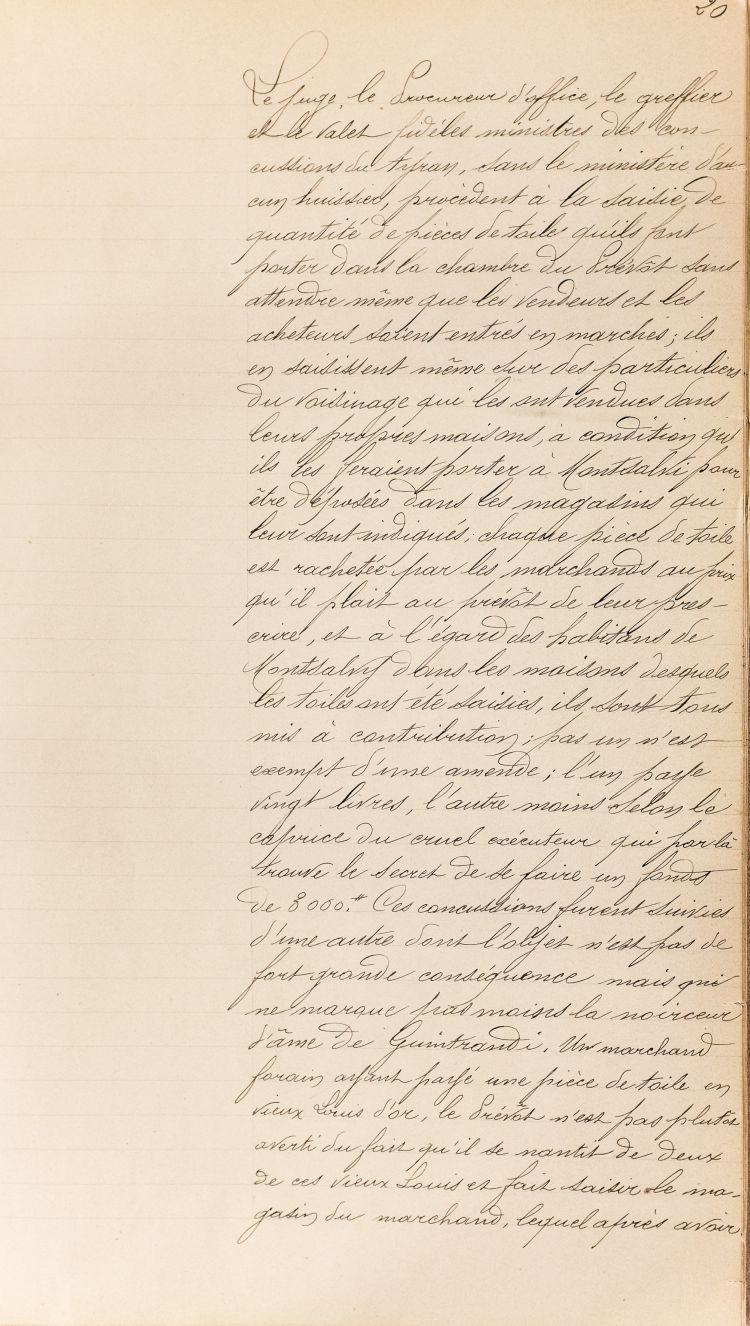 20
Le juge, le Procureur d'office, le greffier
et le valet fidèles ministres des con-
cussions du tyran, sans le ministère d'au-
cun huissier, procèdent à la saisie de
quantité de pièces de toile qu'ils font
porter dans la chambre du Prévôt sans
attendre même que les vendeurs et les
acheteurs soient entrés en marchés; ils
en saisissent même sur des particuliers
du voisinage qui les ont vendues dans
leurs propres maisons, à condition qu'
ils les feraient porter à Montsalvi pour
être déposées dans les magasins qui
leur sont indiqués; chaque pièce de toile
est rachetée par les marchands au prix
qu'il plait au prévôt de leur pres-
crire, et à l'égard des habitans de
Montsalvy dans les maisons desquels
les toiles ont été saisies, ils sont tous
mis à contribution; pas un n'est
exempt d'une amende; l'un paye
vingt livres, l'autre moins selon le
caprice du cruel exécuteur qui par là
trouve le secret de se faire un fonds
de 3000.# Ces concussions furent suivies
d'une autre dont l'objet n'est pas de
fort grande conséquence mais qui
ne marque pas moins la noirceur
d'âme de Guintrandi. Un marchand
forain ayant payé une pièce de toile en
vieux Louis d'or, le Prévôt n'est pas plutôt
averti du fait qu'il se nantit de deux
de ces vieux Louis et fait saisir le ma-
gasin du marchand, lequel après avoir